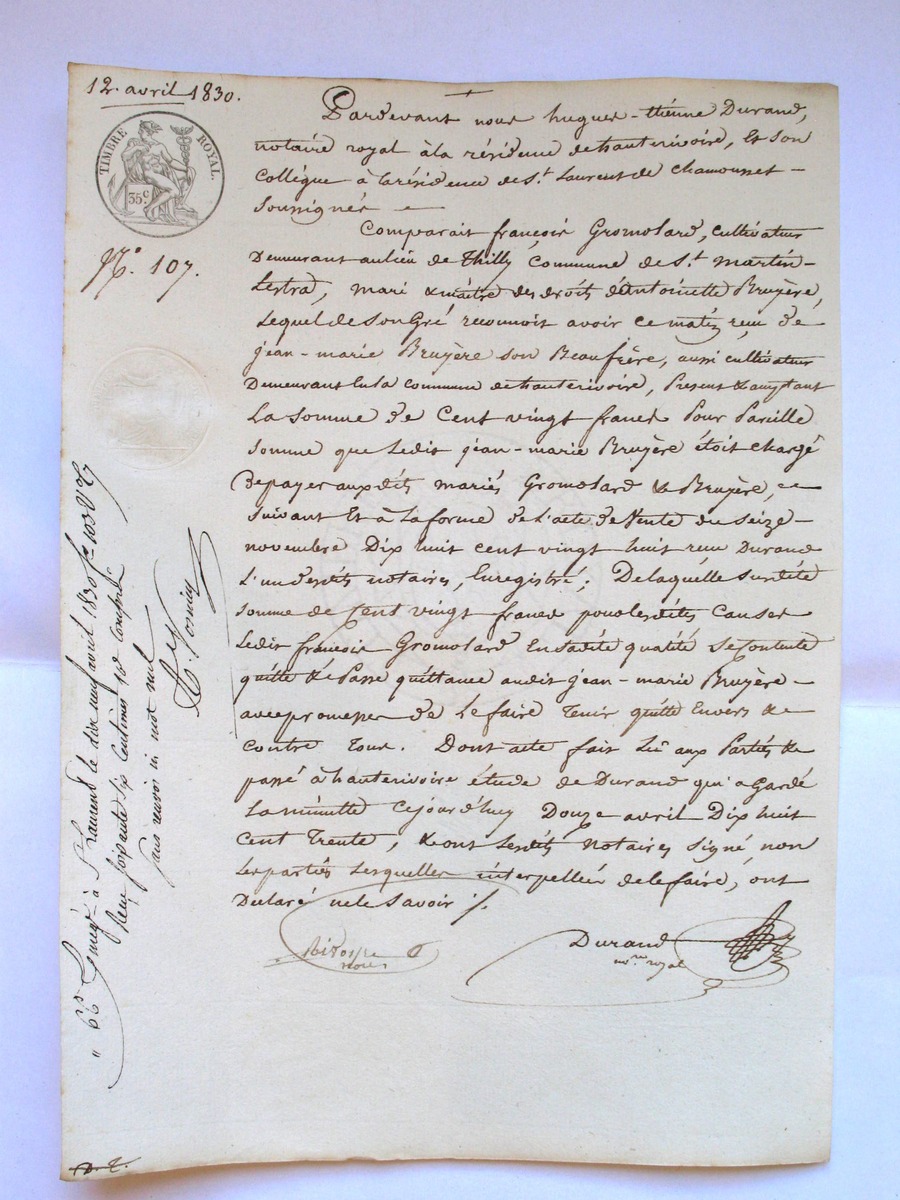 12. avril 1830.
TIMBRE ROYAL.
35 c
N.o 107.
Pardevant nous hugues-étienne Durand,
notaire royal à la résidence de hauterivoire, Et son
Collègue à la résidence de St. Laurent de Chamousset
soussignés
Comparait françois Gromolard, cultivateur
Demeurant au lieu de Thilly commune de St. Martin-
Lestra, mari & maître des droits d'antoinette Bruyère,
Lequel de son Gré reconnoit avoir ce matin reçu de
jean-marie Bruyère son Beaufrère, aussi cultivateur
Demeurant En la commune de hauterivoire, Présent & acceptant
La somme de Cent vingt francs Pour Pareille
somme que Ledit jean-marie Bruyère étoit chargé
De payer aux dits mariés Gromolard & Bruyère, ce
suivant Et à La forme de L'acte de Vente du seize-
novembre Dix huit cent vingt huit reçu Durand
L'un desdits notaires, Enregistré; De laquelle susdite
somme de Cent vingt francs pour lesdites Causes
Ledit françois Gromolard En sadite qualité se Contente
quitte & Passe quittance audit jean-marie Bruyère-
avec promesse de Le faire Tenir quitte Envers &
Contre Tous. Dont acte fait Lu aux Parties &
passé à hauterivoire étude de Durand qui a Gardé
La minutte Cejourd'huy Douze avril Dix huit
Cent Trente, & ont Lesdits Notaires Signé, non
Les parties Lesquelles interpellées de le faire, ont
Declaré ne le Savoir ./.
Durand
no.re royal
Enregé à St Laurent le dix neuf avril 1830 fo 103 Vo
Reçu soixante six centimes 10e compris
sans renvoi ni mot nul